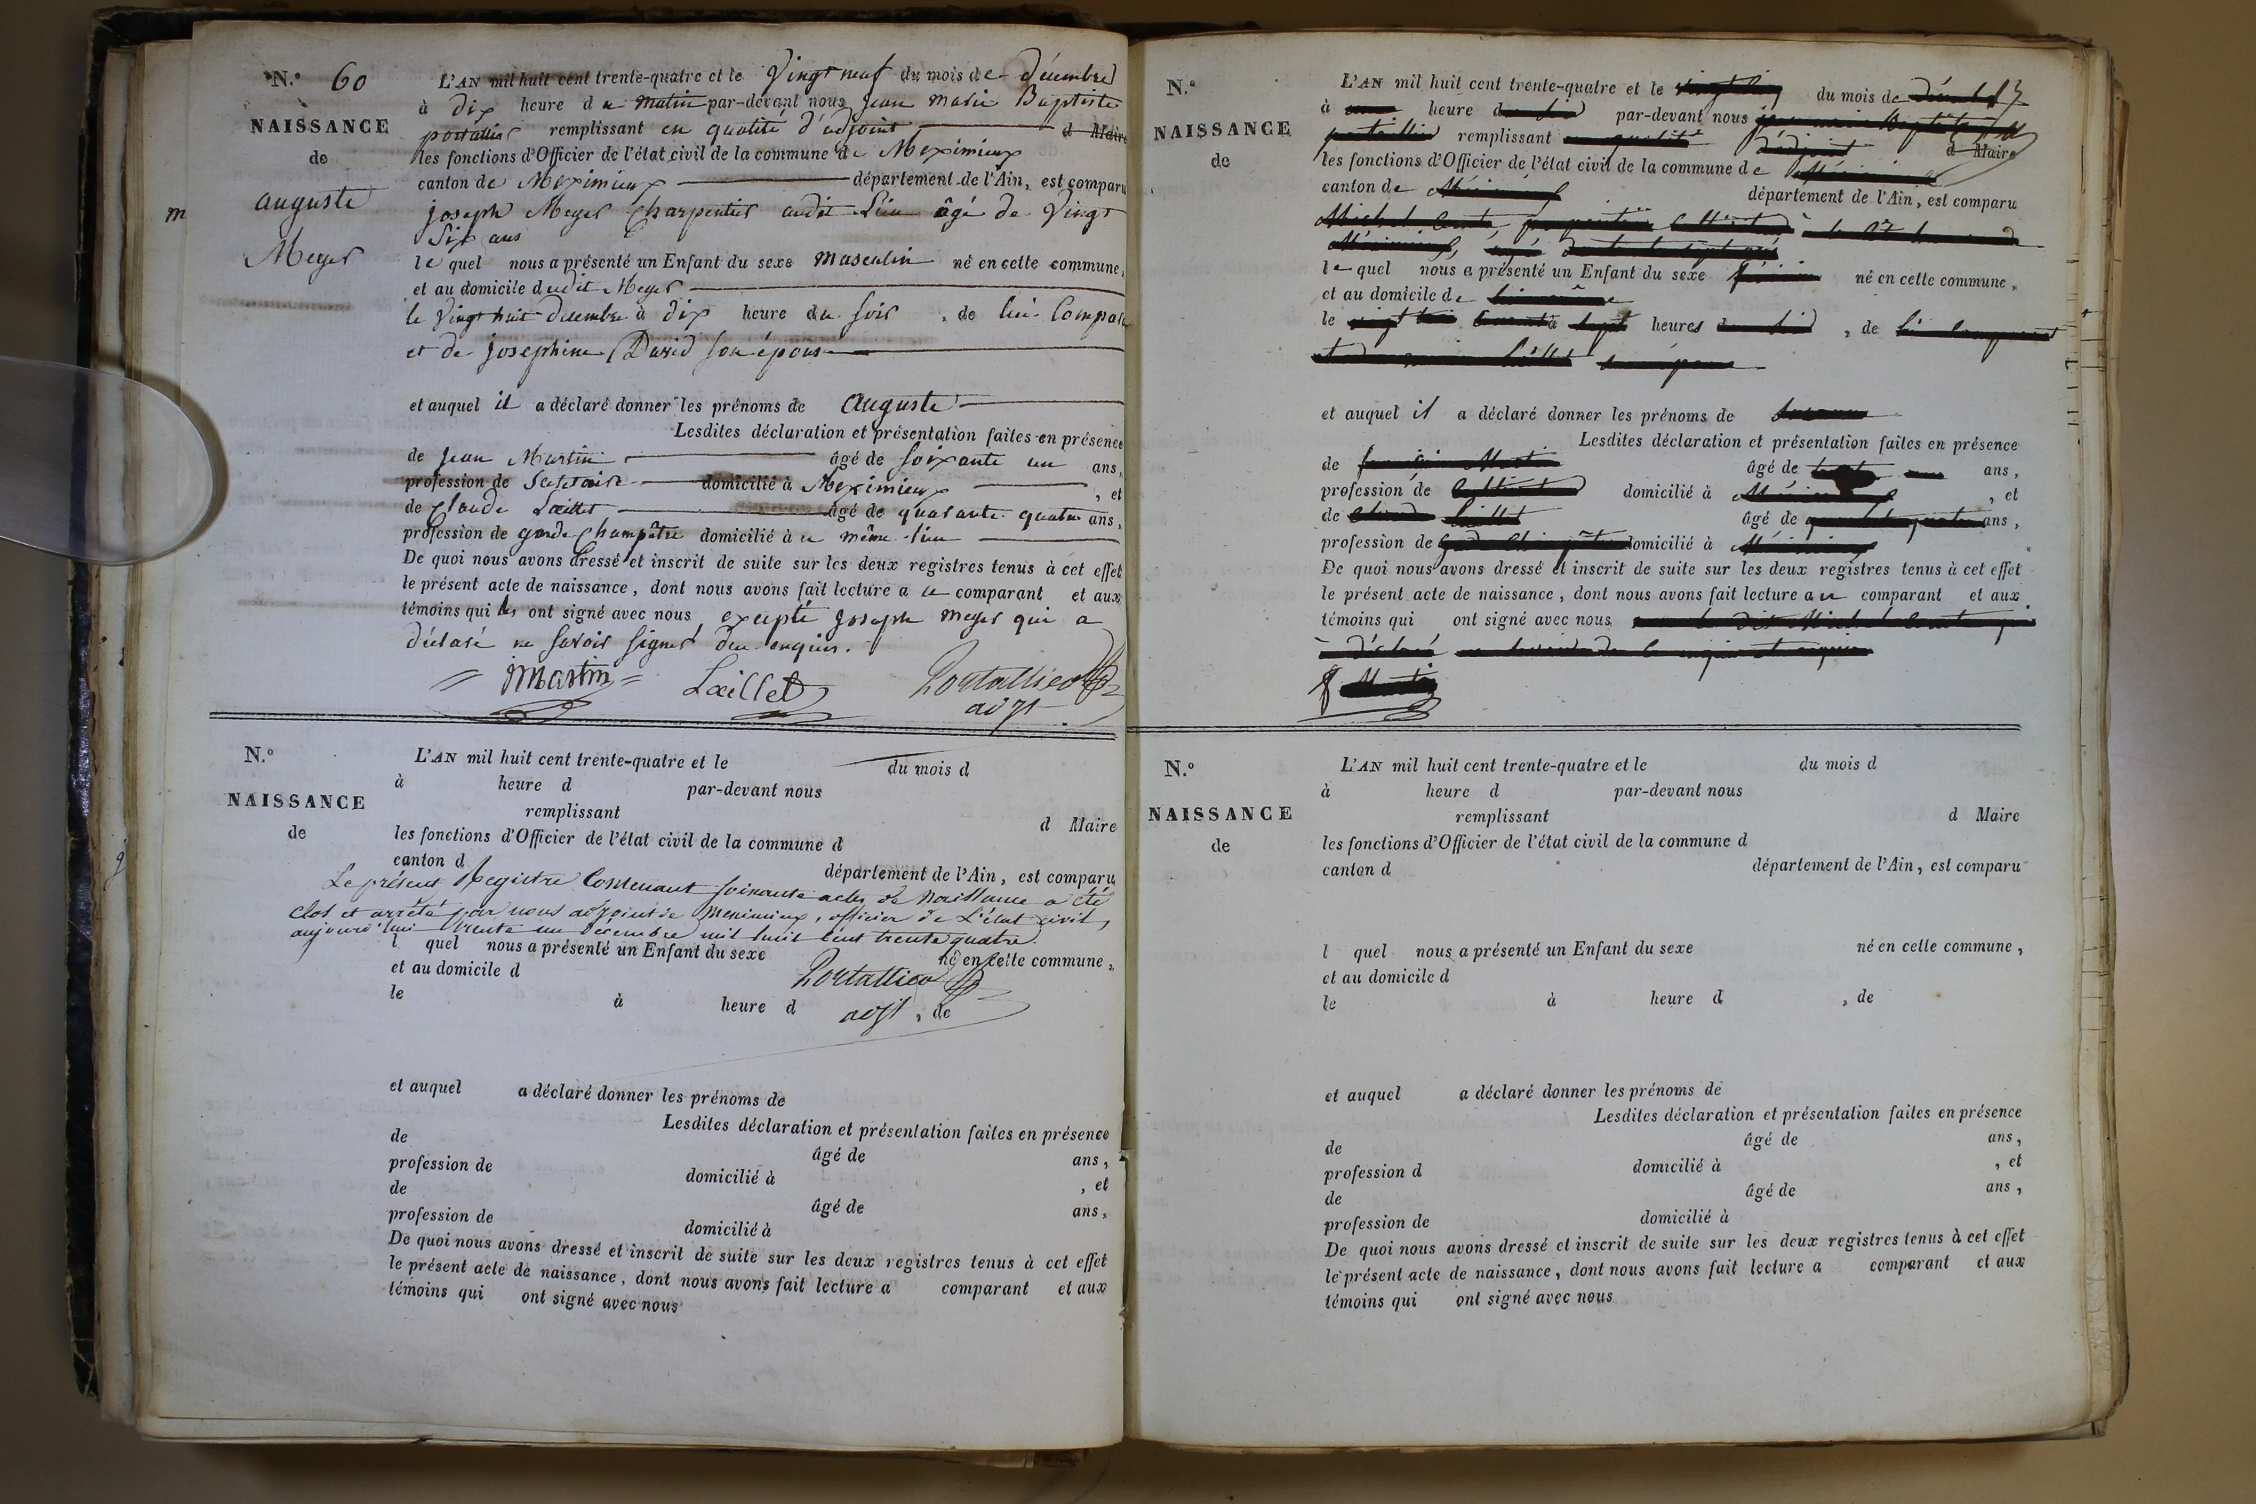 N.° 60
NAISSANCE
de
auguste
Meyer
m
L'AN mil huit cent trente-quatre et le Vingt neuf du mois de décembre
à dix heure du matin par-devant nous jean marie Baptiste
portallier remplissant en qualité d'adjoint d Maire
les fonctions d'Officier de l'état civil de la commune de Meximieux
canton de Meximieux département de l'Ain, est comparu
joseph Meyer Charpentier audit Lieu âgé de Vingt
Six ans
le quel nous a présenté un Enfant du sexe masculin né en cette commune,
et au domicile dudit Meyer
le Vingt huit decembre à dix heure du soir, de lui Comparant
et de josephine David son épouse
et auquel il a déclaré donner les prénoms de auguste
Lesdites déclaration et présentation faites en présence
de jean Martin âgé de soixante un ans,
profession de Secretaire domicilié à Meximieux, et
de Claude Laillet âgé de quarante quatre ans,
profession de garde Champêtre domicilié à ce même lieu
De quoi nous avons dressé et inscrit de suite sur les deux registres tenus à cet effet
le présent acte de naissance, dont nous avons fait lecture a ce comparant et aux
témoins qui les ont signé avec nous excepté joseph meyer qui a
déclaré ne savoir signer, de ce enquis.
jMartin Laillet Portallier
adjt
N.°
NAISSANCE
de
L'AN mil huit cent trente-quatre et le du mois d
à heure d par-devant nous
remplissant d Maire
les fonctions d'Officier de l'état civil de la commune d
canton d département de l'Ain, est comparu
Le présent Registre Contenant soixante actes de Naissance a été
clos et arrêté par nous adjoint de Meximieux, officier de L'état civil,
aujourd'hui trente un décembre mil huit cent trente quatre.
l quel nous a présenté un Enfant du sexe né en cette commune,
et au domicile d
Portallier
le à heure d , de
adjt
et auquel a déclaré donner les prénoms de
Lesdites déclaration et présentation faites en présence
de âgé de ans,
profession de domicilié à , et
de âgé de ans,
profession de domicilié à
De quoi nous avons dressé et inscrit de suite sur les deux registres tenus à cet effet
le présent acte de naissance, dont nous avons fait lecture a comparant et aux
témoins qui ont signé avec nous
N.°
NAISSANCE
de
L'AN mil huit cent trente-quatre et le du mois de
à heure d par-devant nous
remplissant d Maire
les fonctions d'Officier de l'état civil de la commune de
canton de département de l'Ain, est comparu
le quel nous a présenté un Enfant du sexe né en cette commune,
et au domicile de
le à heures , de
et auquel il a déclaré donner les prénoms de
Lesdites déclaration et présentation faites en présence
de âgé de ans,
profession de domicilié à , et
de âgé de ans,
profession de domicilié à
De quoi nous avons dressé et inscrit de suite sur les deux registres tenus à cet effet
le présent acte de naissance, dont nous avons fait lecture a ce comparant et aux
témoins qui ont signé avec nous
N.°
NAISSANCE
de
L'AN mil huit cent trente-quatre et le du mois d
à heure d par-devant nous
remplissant d Maire
les fonctions d'Officier de l'état civil de la commune d
canton d département de l'Ain, est comparu
l quel nous a présenté un Enfant du sexe né en cette commune,
et au domicile d
le à heure d , de
et auquel a déclaré donner les prénoms de
Lesdites déclaration et présentation faites en présence
de âgé de ans,
profession d domicilié à , et
de âgé de ans,
profession de domicilié à
De quoi nous avons dressé et inscrit de suite sur les deux registres tenus à cet effet
le présent acte de naissance, dont nous avons fait lecture a comparant et aux
témoins qui ont signé avec nous